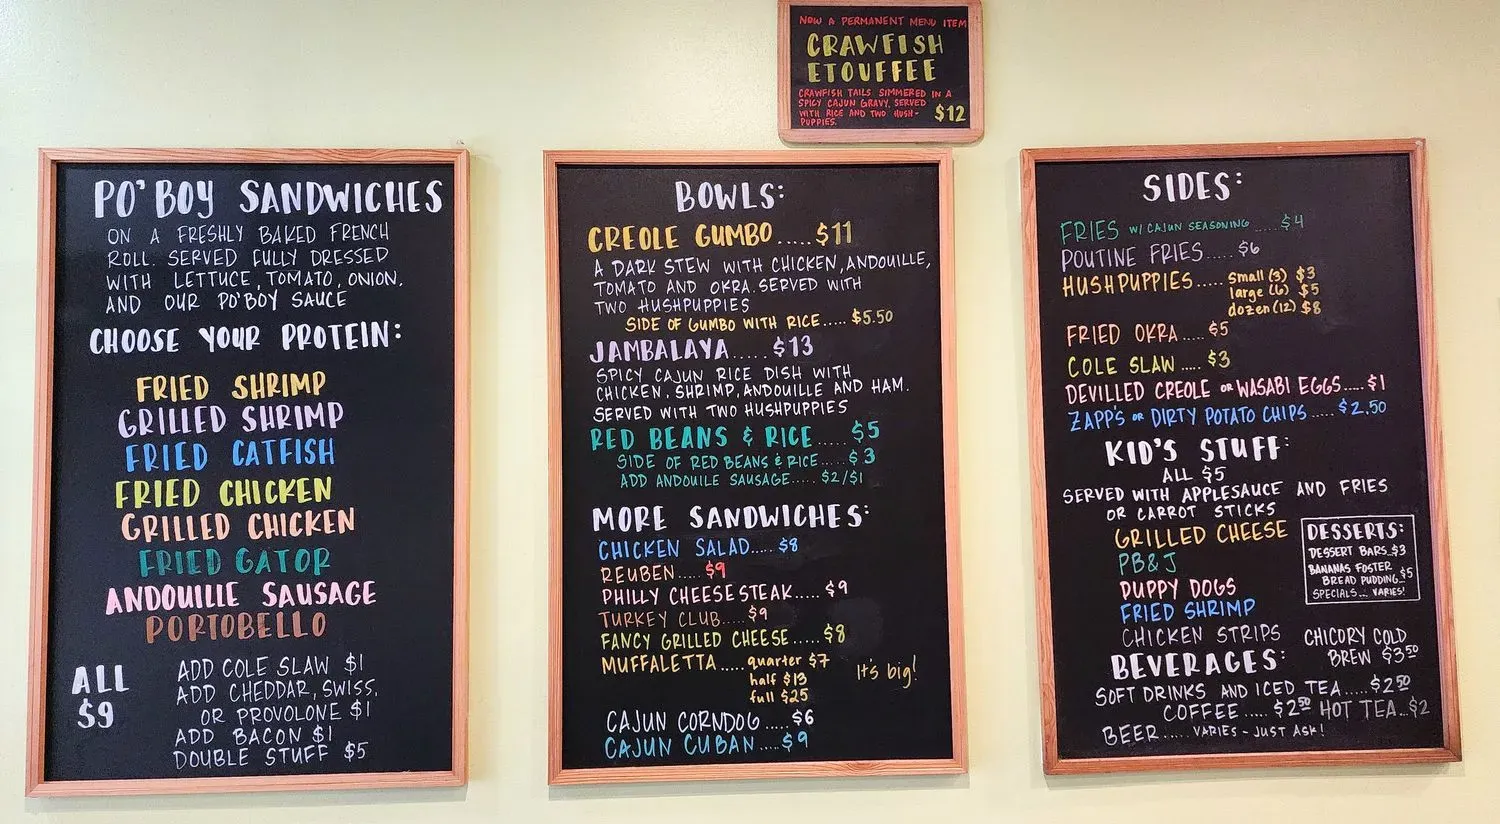 NOW A PERMANENT MENU ITEM
CRAWFISH
ETOUFFEE
CRAWFISH TAILS SIMMERED IN A
SPICY CAJUN GRAVY, SERVED
WITH RICE AND TWO HUSH-
PUPPIES. $12
PO' BOY SANDWICHES
ON A FRESHLY BAKED FRENCH
ROLL. SERVED FULLY DRESSED
WITH LETTUCE, TOMATO, ONION,
AND OUR PO'BOY SAUCE
CHOOSE YOUR PROTEIN:
FRIED SHRIMP
GRILLED SHRIMP
FRIED CATFISH
FRIED CHICKEN
GRILLED CHICKEN
FRIED GATOR
ANDOUILLE SAUSAGE
PORTOBELLO
ALL
$9
ADD COLE SLAW $1
ADD CHEDDAR, SWISS,
OR PROVOLONE $1
ADD BACON $1
DOUBLE STUFF $5
BOWLS:
CREOLE GUMBO.....$11
A DARK STEW WITH CHICKEN, ANDOUILLE,
TOMATO AND OKRA. SERVED WITH
TWO HUSHPUPPIES
SIDE OF GUMBO WITH RICE.....$5.50
JAMBALAYA.....$13
SPICY CAJUN RICE DISH WITH
CHICKEN, SHRIMP, ANDOUILLE AND HAM.
SERVED WITH TWO HUSHPUPPIES
RED BEANS & RICE.....$5
SIDE OF RED BEANS & RICE.....$3
ADD ANDOUILE SAUSAGE.....$2/$1
MORE SANDWICHES:
CHICKEN SALAD....$8
REUBEN....$9
PHILLY CHEESESTEAK.....$9
TURKEY CLUB.....$9
FANCY GRILLED CHEESE.....$8
MUFFALETTA.....quarter $7
half $13
full $25
It's big!
CAJUN CORNDOG.....$6
CAJUN CUBAN....$9
SIDES:
FRIES W/ CAJUN SEASONING.....$4
POUTINE FRIES.....$6
HUSHPUPPIES.....Small (3) $3
large (6) $5
dozen (12) $8
FRIED OKRA.....$5
COLE SLAW.....$3
DEVILLED CREOLE OR WASABI EGGS.....$1
ZAPP'S OR DIRTY POTATO CHIPS.....$2.50
KID'S STUFF:
ALL $5
SERVED WITH APPLESAUCE AND FRIES
OR CARROT STICKS
GRILLED CHEESE
PB&J
PUPPY DOGS
FRIED SHRIMP
CHICKEN STRIPS
DESSERTS:
DESSERT BARS..$3
BANANAS FOSTER
BREAD PUDDING..$5
SPECIALS... VARIES!
CHICORY COLD
BREW $3.50
BEVERAGES:
SOFT DRINKS AND ICED TEA.....$2.50
COFFEE.....$2.50 HOT TEA...$2
BEER.....VARIES - JUST ASK!